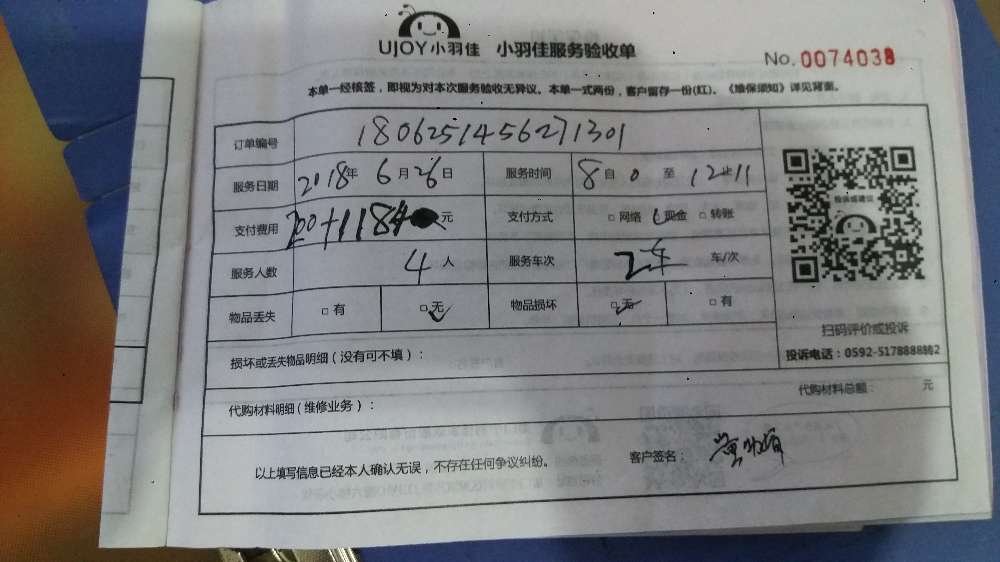 UJOY小羽佳 小羽佳服务验收单
No. 0074038
本单一经核签，即视为对本次服务验收无异议。本单一式两份，客户留存一份(红)。《维保须知》详见背面。
订单编号 1806251456271301
服务日期 2018年 6月26日 服务时间 8自 0 至 12止11
支付费用 200+1184 元 支付方式 □ 网络 现金 □ 转账
服务人数 4 人 服务车次 2车 车/次
物品丢失 □ 有 □无 物品损坏 □无 □ 有
投诉或建议
扫码评价或投诉
损坏或丢失物品明细（没有可不填）：
投诉电话：0592-5178888
代购材料明细（维修业务）：
代购材料总额： 元
以上填写信息已经本人确认无误，不存在任何争议纠纷。 客户签名：